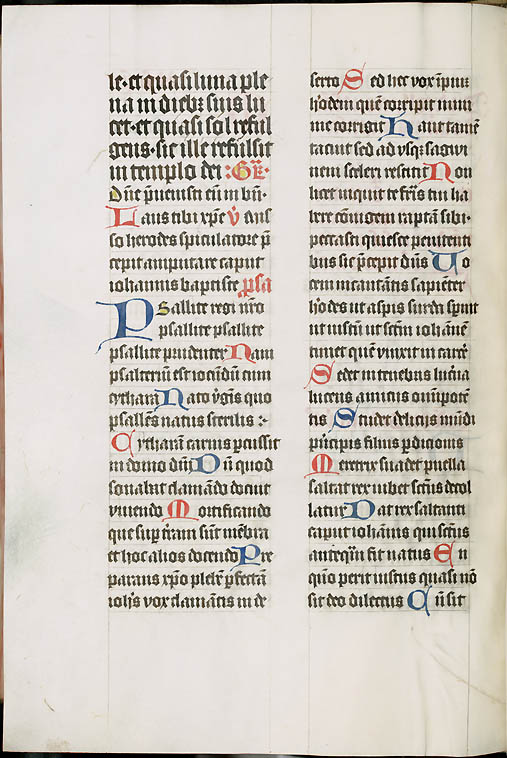 le·et quasi luna ple
na in dieb⁊ suis lu
cet·et quasi sol reful
gens·sit ille refulsit
in templo dei :Gr̄·
Dn̄e p̄uenisti eū in bn̄·
Laus tibi xp̄e v̄ Mis
so herodes spiculatore p̄
cepit amputare caput
iohannis baptiste psa
Psallite regi nr̄o
psallite psallite
psallite prudenter Nam
psalteriū est iocūdū cum
cythara Nato vgīs quo
psallēs natus sterilis :·
Cytharā carnis p̄cussit
in domo dn̄i Dū quod
sonabat clamādo docuit
viuendo Mortificando
que sup t̄ram sūt mēbra
et hoc alios docendo Pre
parans xp̄o plebē p̄fectā
ioh̄is vox clamātis in de
serto Sed hec vox īpiū
h̓odem quē corripit mini
me corrigit Haut tamē
tacuit sed ad vsq⁊ sagwi
nem sceleri restitit Non
licet inquit te fr̄is tui ha
bere cōiugem raptā sibi·
peccasti quiesce penitenti
bus sic p̄cepit dn̄s Uo
cem incantātis sapiēter
h̓odes ut aspis surda spnit
ut iustū ut sctm̄ iohānē
timet quē vinxit in carc̄e
Sedet in tenebris lucīa
lucens amicus om̄ipotē
tis Studet delicijs mūdi
prīcipis filius p̄dicionis
Meretrix suadet puella
saltat rex iubet sctūs decol
latur Dat rex saltanti
caput iohānis qui sctūs
anteqūi fit natus En
quō perit iustus quasi nō
sit deo dilectus Cū sit